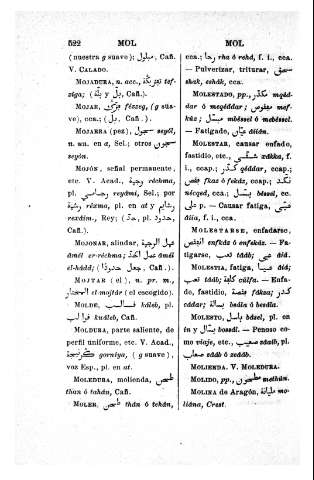 522 MOL MOL
(nuestra g suave); مبلول, Cañ.
V. CALADO.
MOJADURA, n. acc.,
ziga; (بل y بلة, Cañ.).
MOJAR, fézzeg, (g sua-
ve), cca.; (بل, Cañ.).
MOJARRA (pez), سيول seyól,
n. un. en a, Sel.; otros سيون
seyón.
MOJÓN, señal permanente,
etc. V. Acad., réchma,
pl. reyámi, Sel.; por
رشم rézma, pl. en at y
rexáim, Rey; (حد, pl. حدود,
Cañ.).
MOJONAR, alindar,
ámel er-réchma; عمل الحد ámel
el-hádd; (جعل حدودا, Cañ.).
MOJTAR (el), n. pr. m.,
المختار el-mojtár (el escogido).
MOLDE, قالب káleb, pl.
قوالب kuáleb, Cañ.
MOLDURA, parte saliente, de
perfil uniforme, etc. V. Acad.,
gorniya, (g suave),
voz Esp., pl. en at.
MOLEDURA, molienda, طحن
than ó tahán, Cañ.
MOLER, طحن thán ó tehán,
cca.; رحى rha ó rehd, f. i., cca.
— Pulverizar, triturar, سحق
shak, eshák, cca.
MOLESTADO, pp., مكدر mqád-
dar ó meqáddar; mef-
kúz; mbéssel ó mebéssel.
— Fatigado, عيان diián.
MOLESTAR, causar enfado,
fastidio, etc., zákka, f.
i., ccap.; كدر qéddar, ccap.;
fkaz ó fekáz, ccap.; نكد
néqqed, cca.; بسل béssel, cc.
على p. — Causar fatiga, عيى
diia, f. i., cca.
MOLESTARSE, enfadarse,
enfkáz ó enfekáz. — Fa-
tigarse, تعب tádb; عيى diá.
MOLESTIA, fatiga, عيا diá;
تعب tádb; كلفة cúlfa. — Enfa-
do, fastidio, fákza; كدر
cáddar; بسالة bsála ó besála.
MOLESTO, باسل básel, pl. en
in y بسال bossál. — Penoso co-
mo viaje, etc., صعيب sáaib, pl.
صعاب sdáb ó zeáab.
MOLIENDA. V. MOLEDURA.
MOLIDO, pp., مطحون methún.
MOLINA de Aragón, مليانة mo-
liána, Crest.